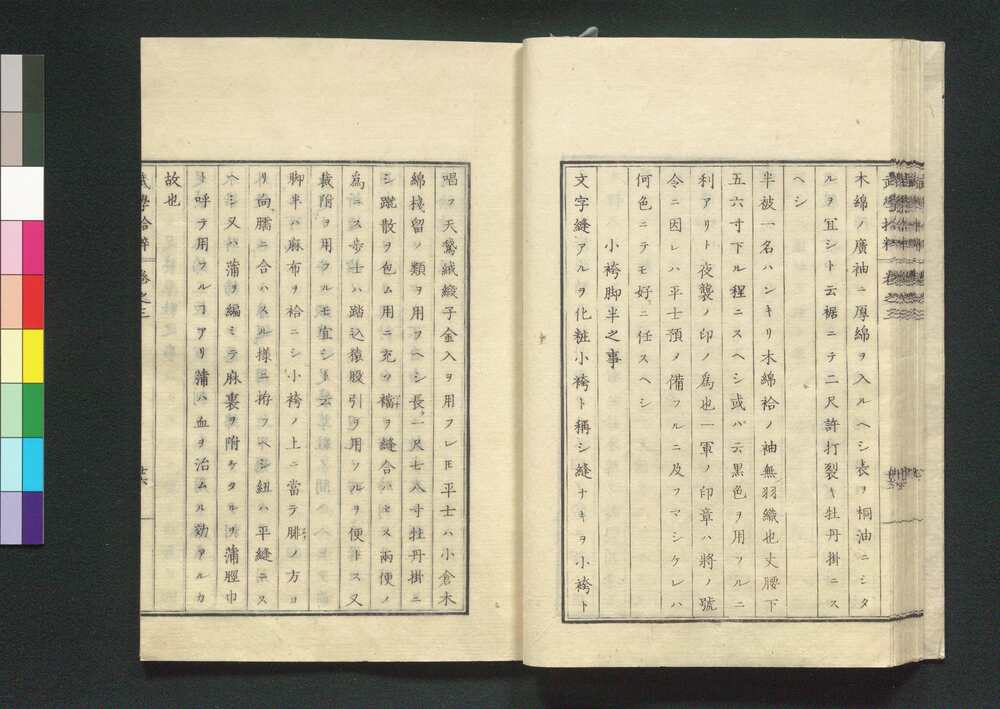 木綿ノ廣袖ニ厚綿ヲ入ルヘシ表ヲ桐油ニシタ
ルヲ宜シト云裾ニテ二尺許打裂キ牡丹掛ニス
ヘシ
半被一名ハンキリ木綿袷ノ袖無羽織也丈腰下
五六寸下ル程ニスヘシ或ハ云黒色ヲ用フルニ
利アリト夜襲ノ印ノ為也一軍ノ印章ハ將ノ號
令ニ因レハ平士預メ備フルニ及フマシケレハ
何色ニテモ好ニ任スヘシ
小袴脚半之事
文字縫アルヲ化粧小袴ト稱シ縫ナキヲ小袴ト
唱フ天鵞絨緞子金入ヲ用フレ𪜈平士ハ小倉木
綿棧留ノ類ヲ用フヘシ長一尺七八寸牡丹掛ニ
シ蹴散ヲ包ム用ニ充ツ襠ヲ縫合ハセス兩便ノ
為ニス歩士ハ踏込猿股引ヲ用フルヲ便トス又
裁附ヲ用フルモ宜シト云
脚半ハ麻布ヲ袷ニシ小袴ノ上ニ當テ腓ノ方ヨ
リ向臑ニ合ハスル様ニ拵フヘシ紐ハ平縫ニス
ヘシ又ハ蒲ヲ編ミテ麻裏ヲ附ケタルヲ蒲脛巾
ト呼テ用フルヿアリ蒲ハ血ヲ治ムル効アルカ
故也
武學拾粹 卷之三